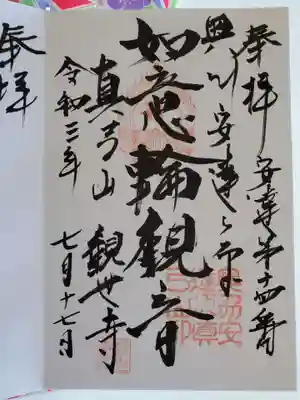 奉拝 安達第十四番
奥州安達ヶ原
如意輪觀音
真弓山 觀世寺
令和三年 七月十七日
奉拝